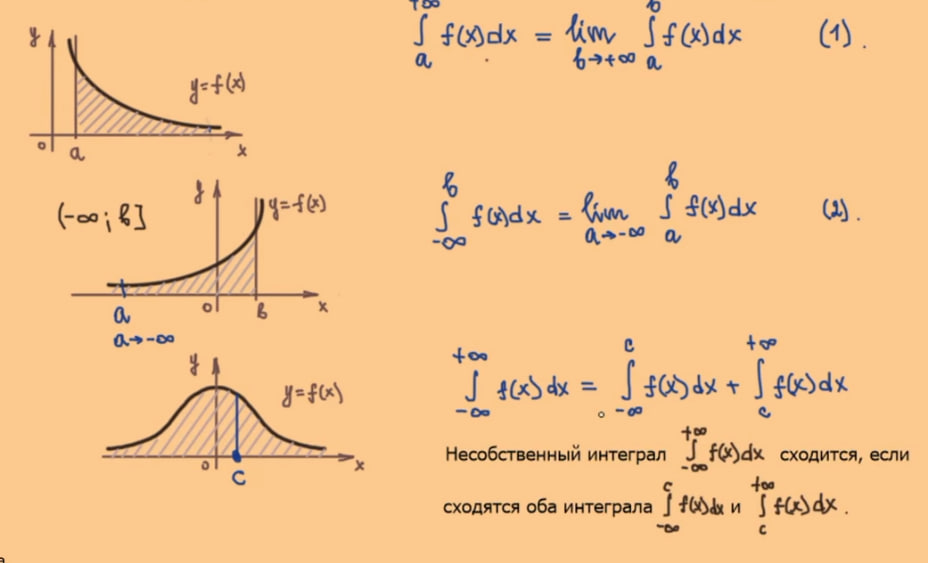 y
y=f(x)
0 a x
+∞∫a f(x)dx = lim b→+∞ b∫a f(x)dx (1).
(-∞; b]
y
y=f(x)
a 0 b x
a→-∞
b∫-∞ f(x)dx = lim a→-∞ b∫a f(x)dx (2).
y
y=f(x)
0 c x
+∞∫-∞ f(x)dx = c∫-∞ f(x)dx + +∞∫c f(x)dx
Несобственный интеграл +∞∫-∞ f(x)dx сходится, если
сходятся оба интеграла c∫-∞ f(x)dx и +∞∫c f(x)dx.